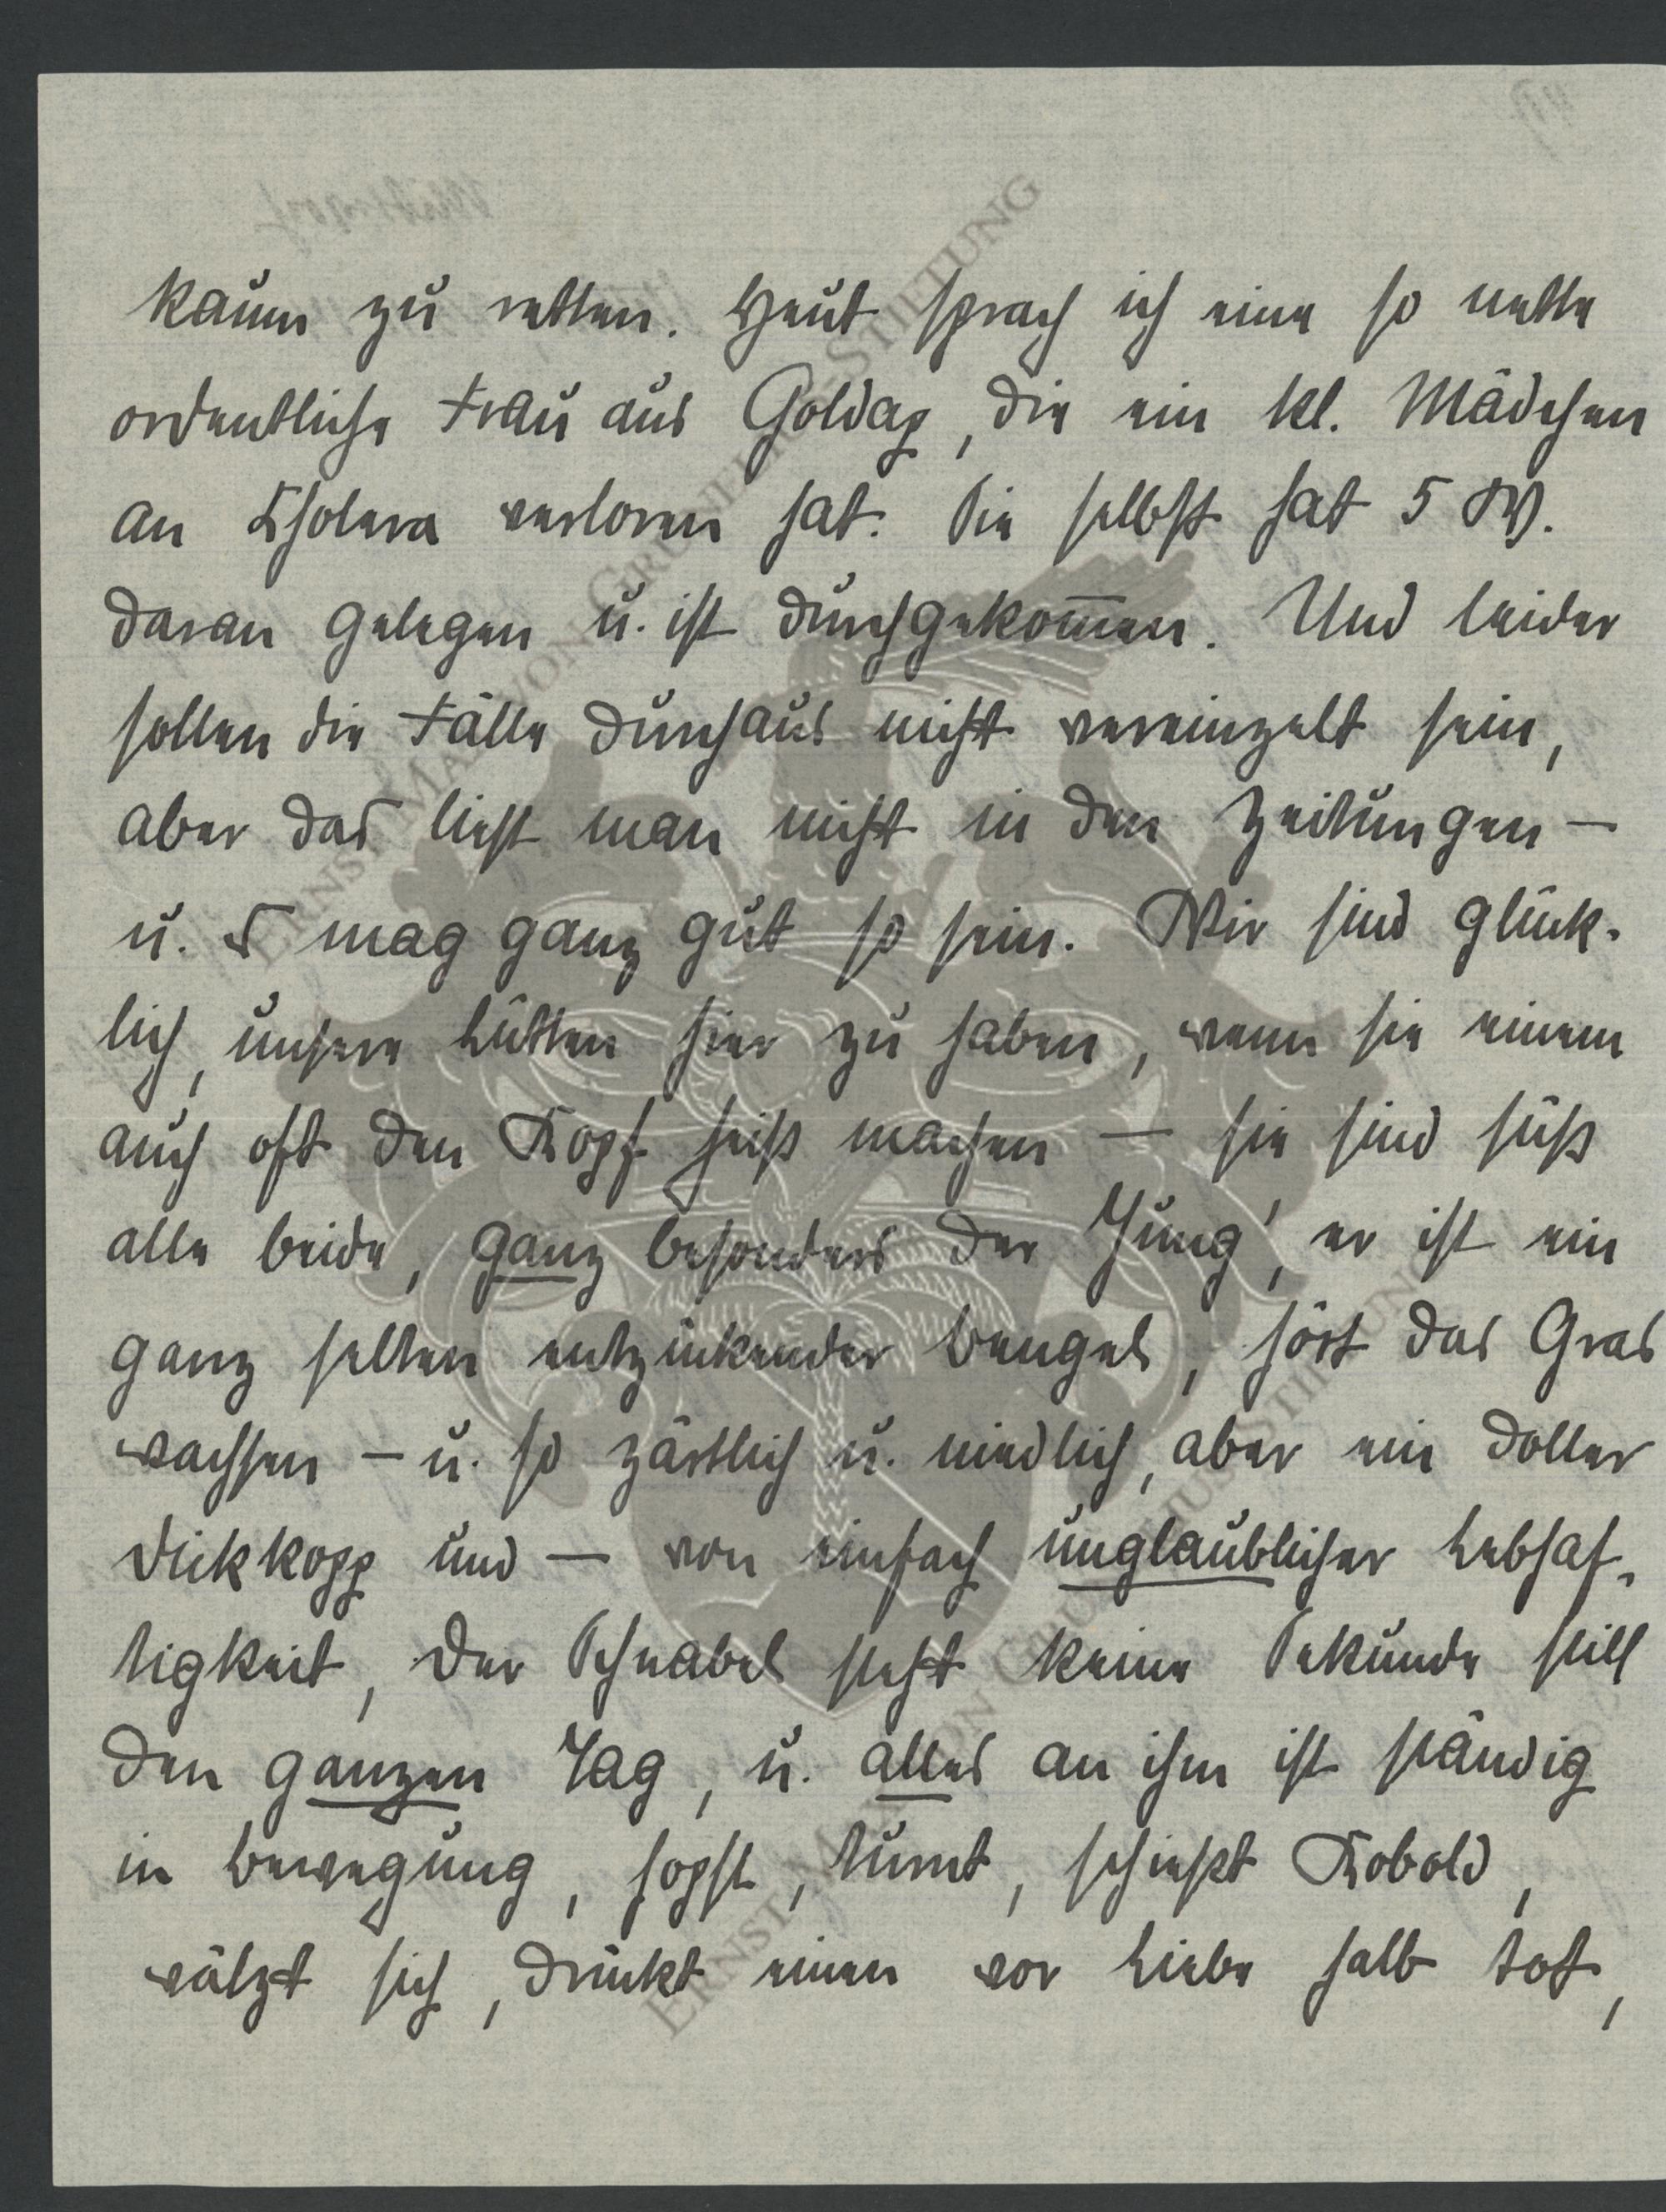 kaum zu retten. Heut sprach ich eine so nette
ordentliche Frau aus Goldap, die ein kl. Mädchen
an Cholera verloren hat. Sie selbst hat 5 W.
daran gelegen u. ist durchgekom̅en. Und leider
sollen die Fälle durchaus nicht vereinzelt sein,
aber das liest man nicht in den Zeitungen –
u. 's mag ganz gut so sein. Wir sind glück-
lich, unsere Lütten hier zu haben, wenn sie einem
auch oft den Kopf heiß machen – sie sind süß
alle beide, ganz besonders der Jung', er ist ein
ganz selten entzückender Bengel, hört das Gras
wachsen – u. so zärtlich u. niedlich, aber ein doller
Dickkopp und – von einfach unglaublicher Lebhaf-
tigkeit, der Schnabel steht keine Sekunde still
den ganzen Tag, u. alles an ihm ist ständig
in Bewegung, hopst, turnt, schießt Kobold,
wälzt sich, drückt einen vor Liebe halb tot,
ERNST MAX VON GRUNELIUS-STIFTUNG
ERNST MAX VON GRUNELIUS-STIFTUNG